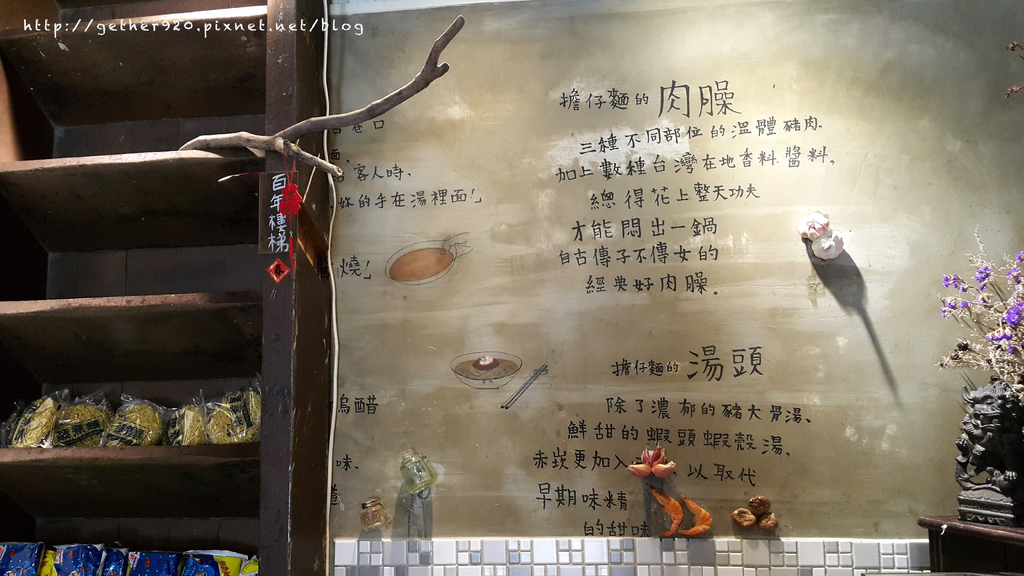 http://gether920.pixnet.net/blog
百年樓梯
巷口
麵.
客人時.
妳的手在湯裡面!」
燒!」
烏醋
味.
擔仔麵的 肉臊
三種不同部位的溫體豬肉.
加上數種台灣在地香料醬料,
總得花上整天功夫
才能悶出一鍋
自古傳子不傳女的
經典好肉臊.
擔仔麵的 湯頭
除了濃郁的豬大骨湯、
鮮甜的蝦頭蝦殼湯,
赤崁更加入 以取代
早期味精
的甜味